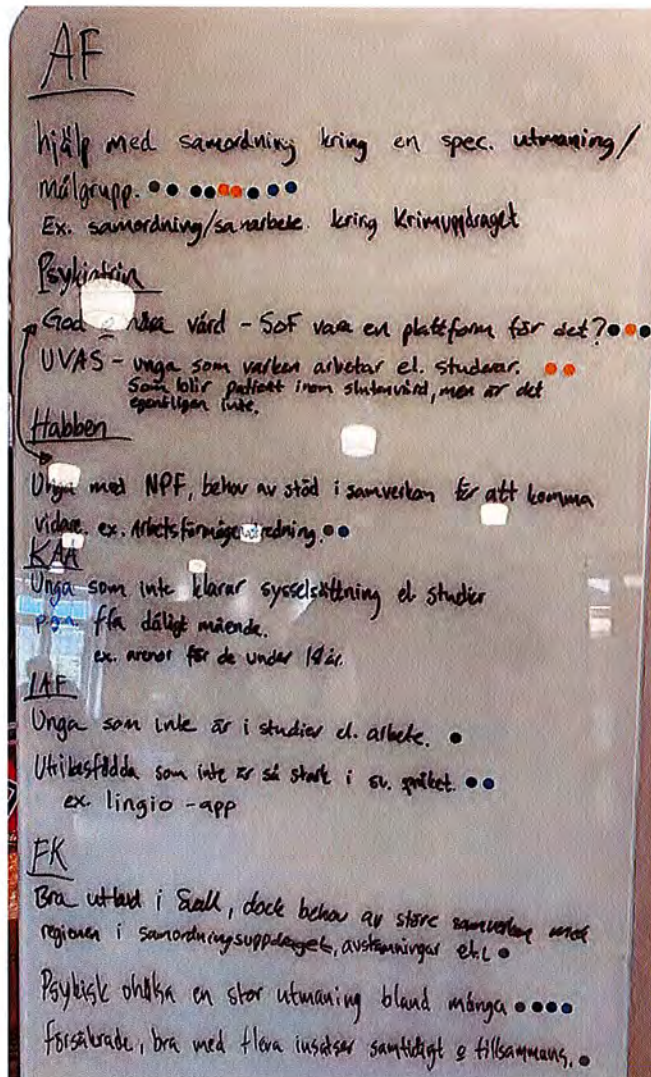 AF
hjälp med samordning kring en spec. utmaning/
målgrupp.
Ex. samordning/samarbete kring Krimuppdraget
Psykiatrin
God & nära vård - SoF vara en plattform för det?
UVAS - unga som varken arbetar el. studerar.
som blir patient inom slutenvård, men är det
egentligen inte.
Habben
Unga med NPF, behov av stöd i samverkan för att komma
vidare. ex. Arbetsförmågeutredning.
KAA
Unga som inte klarar sysselsättning el. studier
p.g.a. ffa dåligt mående.
ex. arenor för de under 18 år.
IAF
Unga som inte är i studier el. arbete.
Utrikesfödda som inte är så stark i sv. språket.
ex. lingio - app
FK
Bra i dock behov av större samverkan med
regionen i samordningsuppdraget, avstämningar
Psykisk ohälsa en stor utmaning bland många
försäkrade, bra med flera insatser samtidigt & tillsammans.